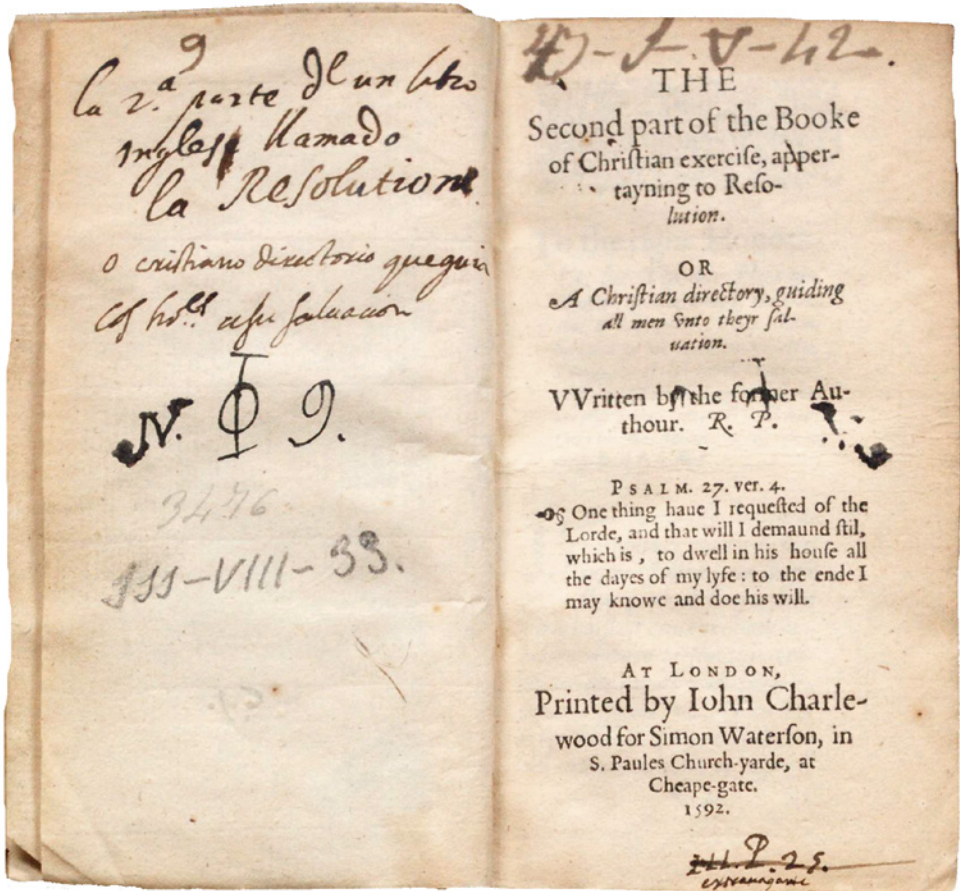 9
la 2.ª parte del un libro
Ingles llamado
la Resolutione
o cristiano directorio que guia
los ho.es a su saluacion
IV. 9.
3476
III-VIII-33.
THE
Second part of the Booke
of Chriſtian exerciſe, apper-
tayning to Reſo-
lution.
OR
A Chriſtian directory, guiding
all men vnto theyr ſal-
uation.
VVritten by the former Au-
thour. R. P.
PSALM. 27. ver. 4.
One thing haue I requeſted of the
Lorde, and that will I demaund ſtil,
which is, to dwell in his houſe all
the dayes of my lyfe: to the ende I
may knowe and doe his will.
AT LONDON,
Printed by Iohn Charle-
wood for Simon Waterſon, in
S. Paules Church-yarde, at
Cheape-gate.
1592.
P. 25.